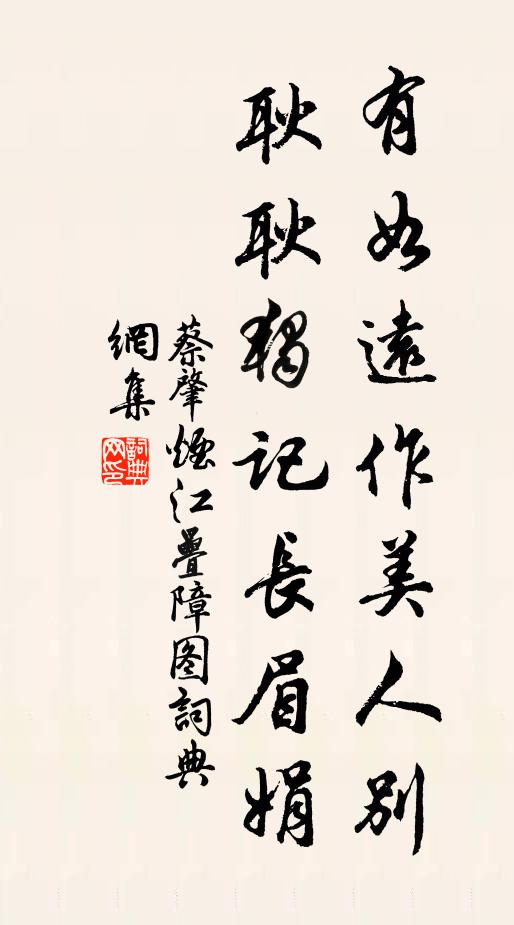 有如遠作美人別
耿耿獨記長眉娟
蔡肇煙江疊障图詞典
網集
詞典网印